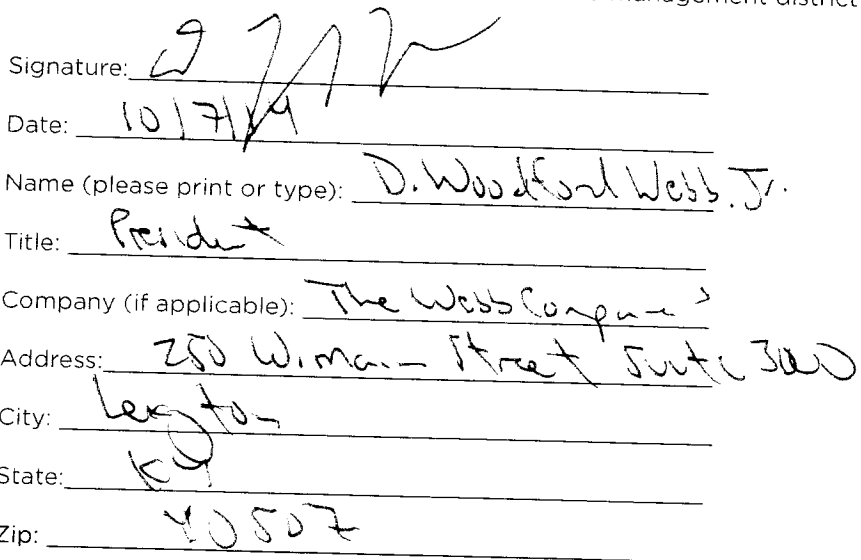 management district
Signature:
Date: 10/7/14
Name (please print or type): D. Woodford Webb, Jr.
Title: President
Company (if applicable): The Webb Companies
Address: 250 W. Main Street Suite 3000
City: Lexington
State: KY
Zip: 40507